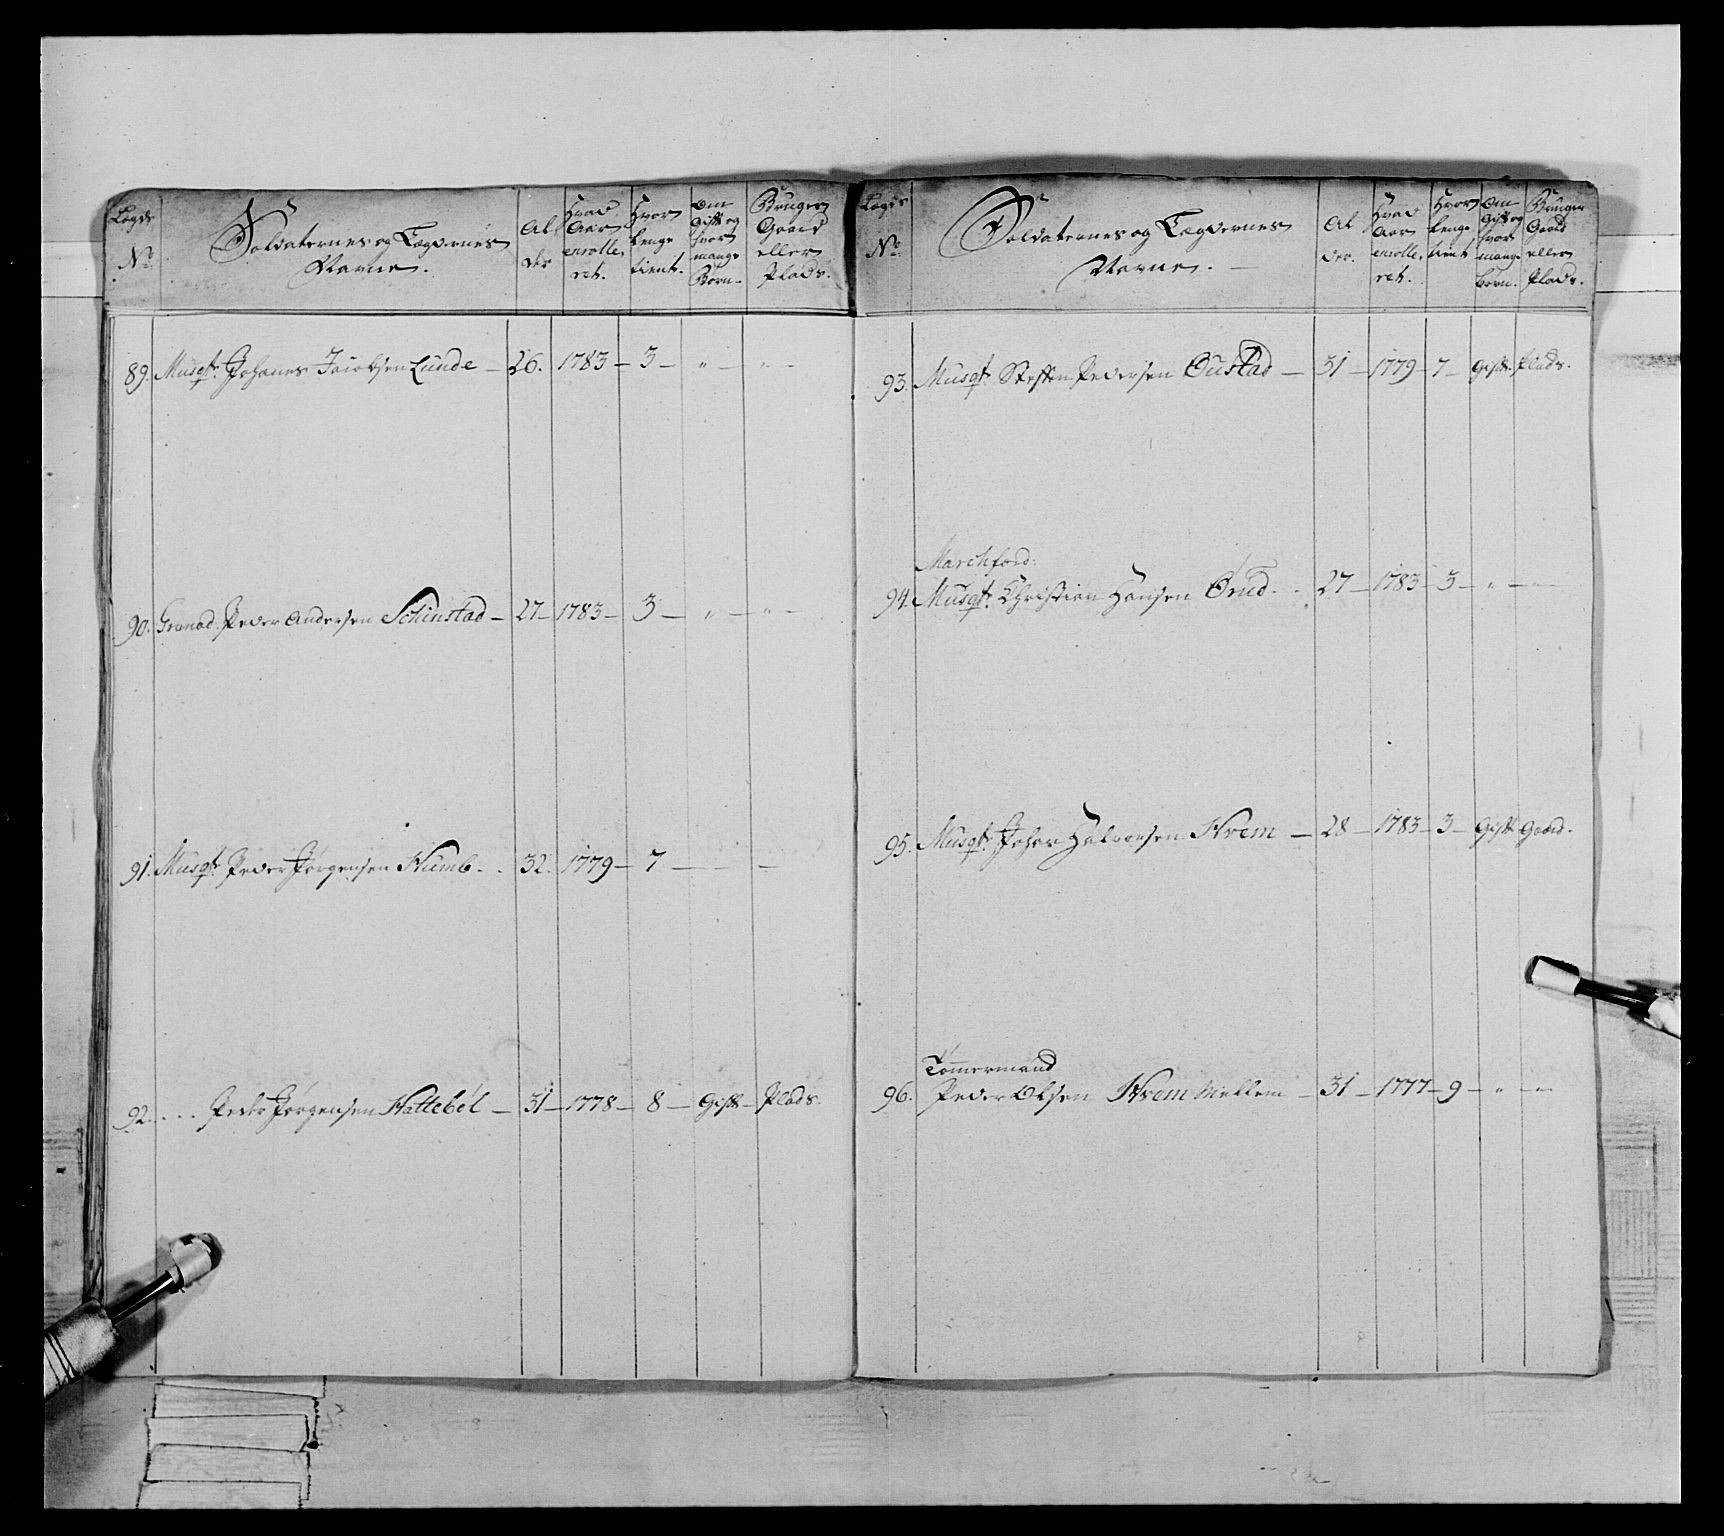 Lægds
No
Soldaternes og Lægdernes
Navne.
Al
der
Hvad
Aar
enrolle
ret.
Hvor
lenge
tient.
Om
Gift og
hvor
mange
Børn
Bruger
Gaard
eller
Plads.
89. Musqt. Johanes Jacobsen Lunde – 26. 1783 – 3 – " – " –
90. Grenad. Peder Andersen Schinstad – 27 – 1783 – 3 – " – " –
91. Musqt. Peder Jørgensen Humb . . 32. 1779 – 7 – – –
92. . . . Peder Jørgensen Hattebøl – 31 – 1778 – 8 – Gift – Plads.
Lægds
No
Soldaternes og Lægdernes
Navne. –
Al
der.
Hvad
Aar
enrolle
ret.
Hvor
lenge
tient
Om
Gift og
hvor
mange
børn.
Bruger
Gaard
eller
Plads.
93. Musqt. Steffen Pedersen Oustad – 31 – 1779 – 7 – Gift. Plads.
Marchford:
94. Musqt. Christian Hansen Ørud . . 27 – 1783 – 3 – " – " –
95. Musqt. Johan Halvorsen Hrem – 28 – 1783 – 3 – Gift Gaard.
Tømermand
96. Peder Olsen Hrem Mellem – 31 – 1777 – 9 – " – " –